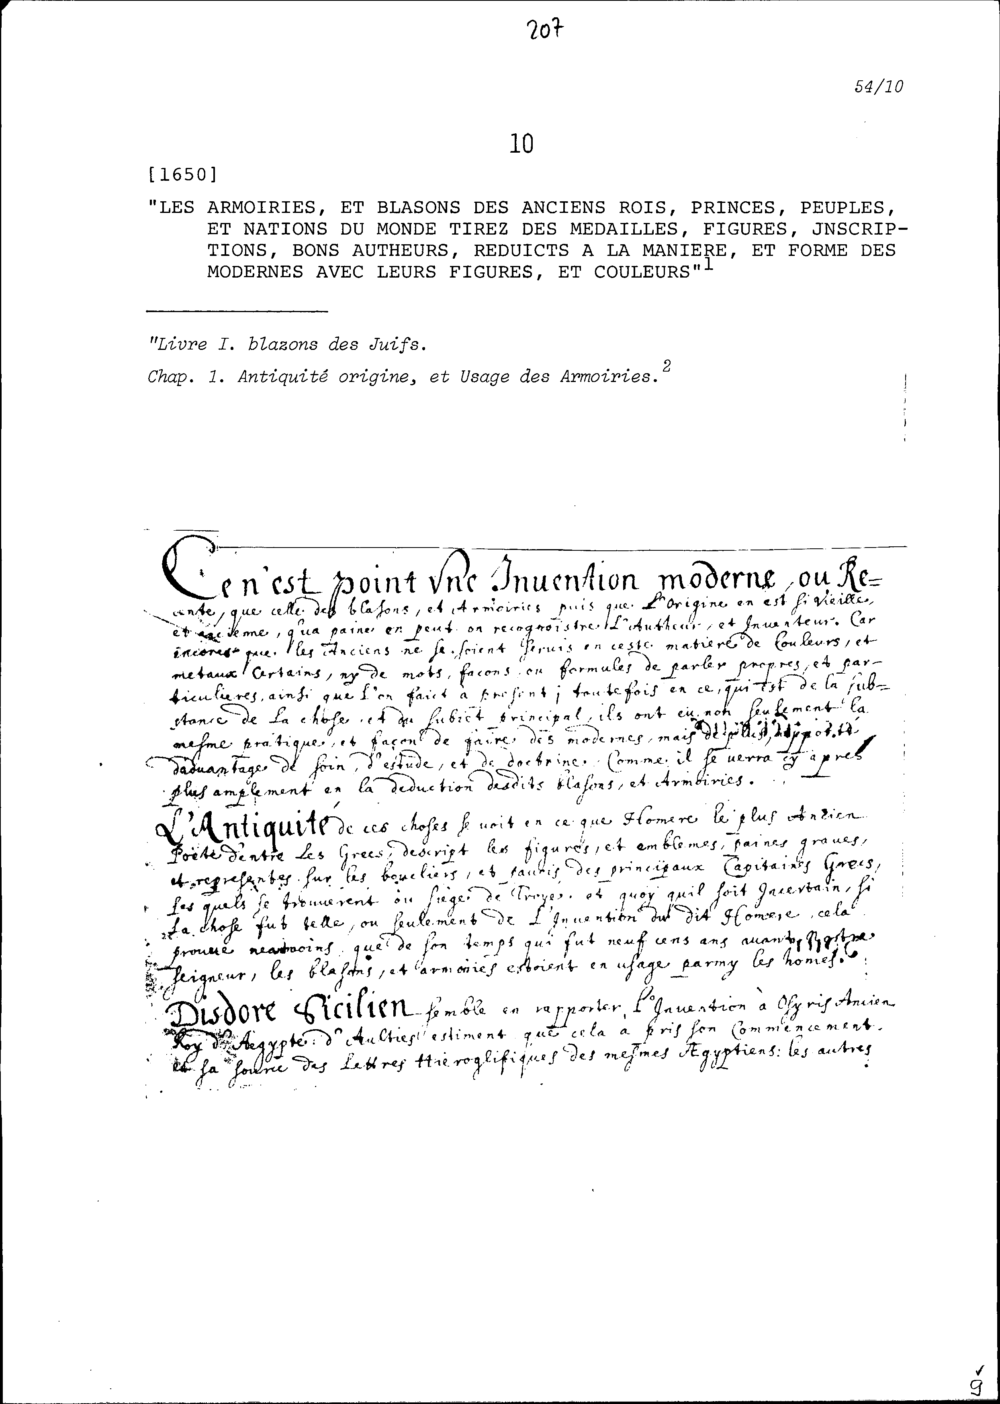 207
54/10
10
[1650]
"LES ARMOIRIES, ET BLASONS DES ANCIENS ROIS, PRINCES, PEUPLES,
ET NATIONS DU MONDE TIREZ DES MEDAILLES, FIGURES, JNSCRIP-
TIONS, BONS AUTHEURS, REDUICTS A LA MANIERE, ET FORME DES
MODERNES AVEC LEURS FIGURES, ET COULEURS"1
"Livre I. blazons des Juifs.
Chap. 1. Antiquité origine, et Usage des Armoiries.2
Ce n'est point vne Inuention moderne, ou Re=
cente, que celle des blasons, et Armoiries puis que L'Origine en est si vieille,
et ancienne, qu'a paine en peut on recognoistre L'Autheur, et Inuenteur. Car
encores que les Anciens ne se soient seruis en ceste matiere de Couleurs, et
metaux Certains, ny de mots, facons ou formules de parler propres, et par-
ticulieres, ainsi que l'on faict a present; toutefois en ce, qui est de la sub=
stance de la chose et du subiet principal, ils ont eu non seulement la
mesme pratique, et façon de faire des modernes, mais de plus, apporté
dauantage de soin, d'estude, et de doctrine. Comme il se verra cy apres
plus amplement en la deduction desdits blasons, et Armoiries.
L'Antiquité de ces choses se uoit en ce que Homere le plus Ancien
Poëte d'entre Les Grecs, descript les figures, et emblemes, paines graues,
et representes sur les boucliers, et pauois des principaux Capitaines Grecs,
les quels se trouuerent ou siege de Troye. et quoy quil soit Incertain, si
la chose fut telle, ou seulement de L'Inuention du dit Homere, cela
prouue neantmoins que de son temps qui fut neuf cens ans auant Nostre
Seigneur, les blasons, et armoiries estoient en usage parmy les homes.
Disdore Sicilien semble en rapporter L'Inuention à Osyris Ancien
Roy d'Aegypte: d'Aultres estiment que cela a pris son Commencement
et sa source des Lettres Hieroglifiques des mesmes Ægyptiens: les autres
9